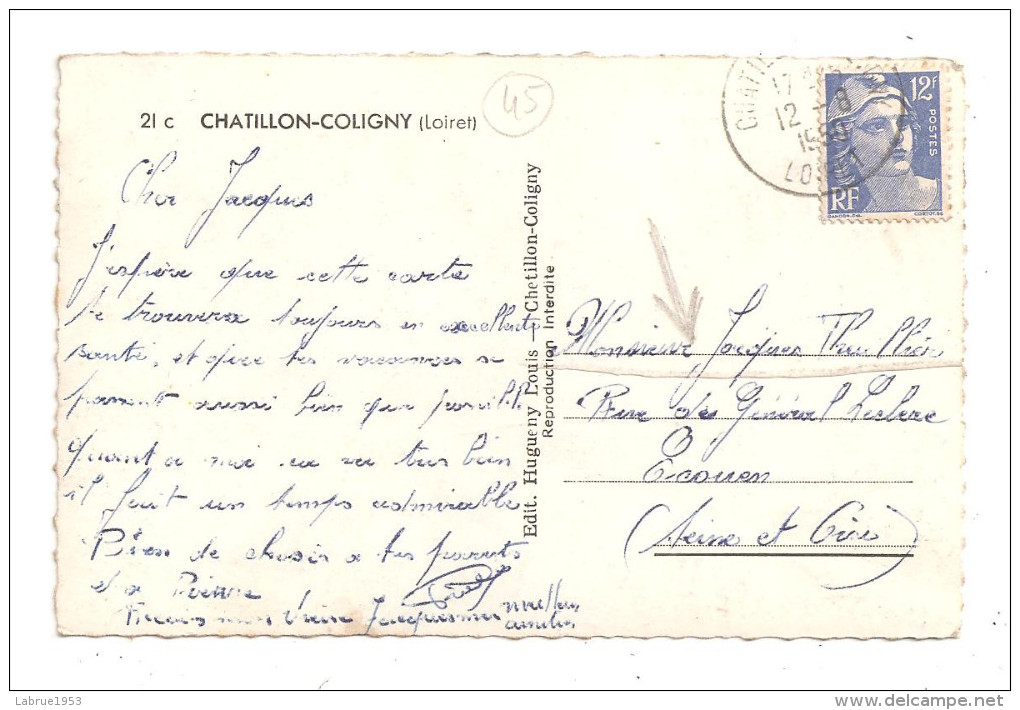 21 c CHATILLON-COLIGNY (Loiret)
45
CHATIL
17
12 - 8
1950
LOIRET
12F
POSTES
RF
GANDON.DEL.
Cher Jacques
J'espère que cette carte
te trouvera toujours en excellente
santé, et que tes vacances se
passent aussi bien que possible
quant a moi ca va tres bien
il fait un temps admirable
Bien de choses a tes parents
et a Pierre
mon vieux
amitiés
Edit. Hugueny Louis — Chetillon-Coligny
Reproduction Interdite
Monsieur Jacques
Rue du Général Leclerc
Ecouen
(Seine et Oise)
Labrue1953
www.delcampe.net